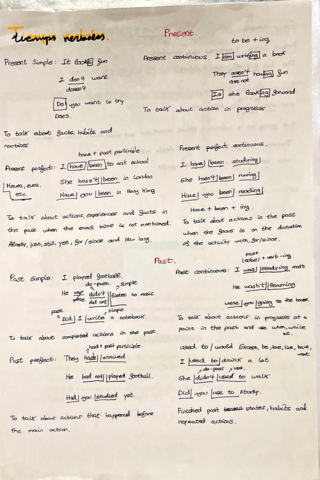 Tiempos verbales.
Present
Present simple: It looks fun
I don't want
doesn't
Do you want to try
Does.
To talk about facts, habits and
routines
to be + ing
Present continuous: I am writing a book
They aren't having fun
are not
Is she looking forward
To talk about action in progress
have + past participle
Present perfect: I have been to art school
She hasn't been in London
Have you been in Hong Kong
To talk about actions, experiences and facts in
the past when the exact time is not mentioned.
Already, just, still, yet, for / since and how long.
Present perfect continuous.
I have been studying
She hasn't been running
Have you been reading
Have + been + ing.
To talk about actions in the past
when the focus is on the duration
of the activity with, for/since.
Past.
Past simple: I played football.
do-past, simple
He didn't listen to music
did not
past simple.
Did I write a notebook.
To talk about completed actions in the past.
had + past participle.
Past perfect: They had arrived
He had not played football.
Had you studied yet.
To talk about actions that happened before
the main action.
past
+ verb-ing
Past continuous: I was studying math
He wasn't
were you going to the
To talk about actions in progress at a
point in the past and use when, while
etc.
used to / would Except, be, love, live, have,
want.
I used to drink a lot
do-past, use.
She didn't used to walk
Did you use to study.
Finished past states, habits and
repeated actions.